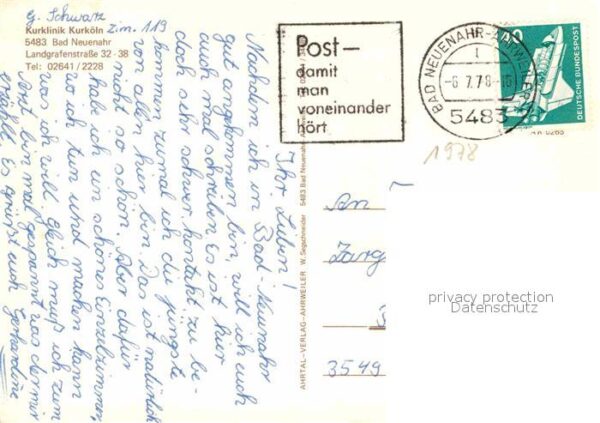 G. Schwarz
Kurklinik Kurköln Zim. 119
5483 Bad Neuenahr
Landgrafenstraße 32 - 38
Tel: 02641 / 2228
Post –
damit
man
voneinander
hört
BAD NEUENAHR-AHRWEILER 1
-6.7.78-16
5483
DEUTSCHE BUNDESPOST
1978
Ihr Lieben!
Nachdem ich in Bad Neuenahr
gut angekommen bin, will ich euch
auch mal schreiben. Es ist hier
doch sehr schwer, kontakt zu be-
kommen zumal ich die jüngste
von allen hier bin. Das ist natürlich
nicht so schön. Aber dafür
habe ich ein schönes Einzelzimmer,
wo ich tun und machen kann
was ich will. Gleich muß ich zum
Arzt bin mal gespannt was der mir
erzählt. Es grüßt euch Gerhardine
AHRTAL-VERLAG-AHRWEILER W. Segschneider 5483 Bad Neuenahr-Ahrweiler
An
Jarg
3549
privacy protection
Datenschutz